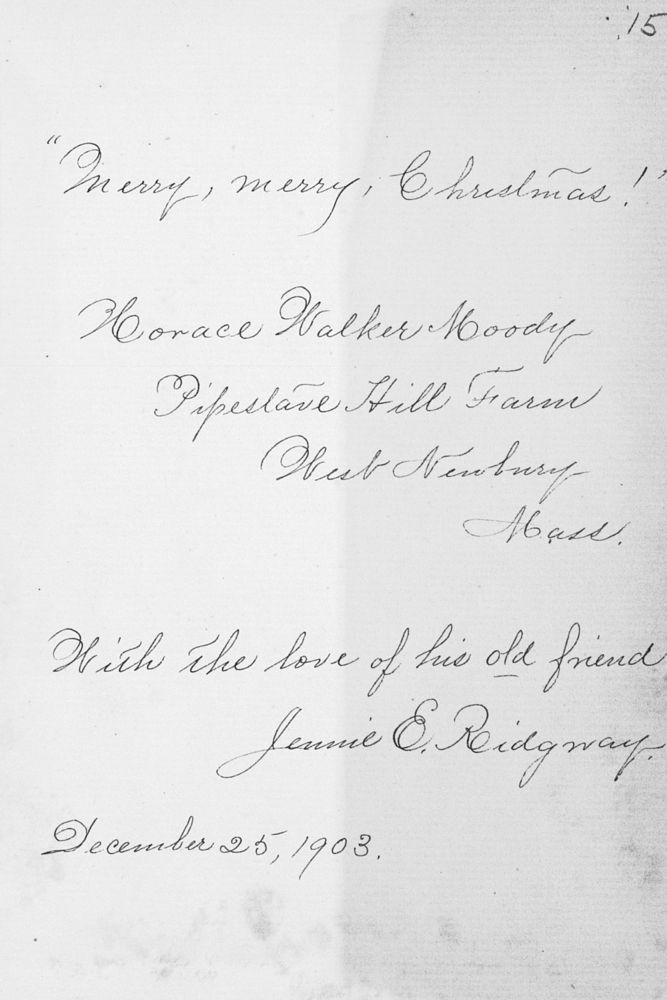 '15
"Merry, merry, Christmas!"
Horace Walker Moody
Pipestave Hill Farm
West Newbury
Mass.
With the love of his old friend
Jennie E. Ridgway.
December 25, 1903.